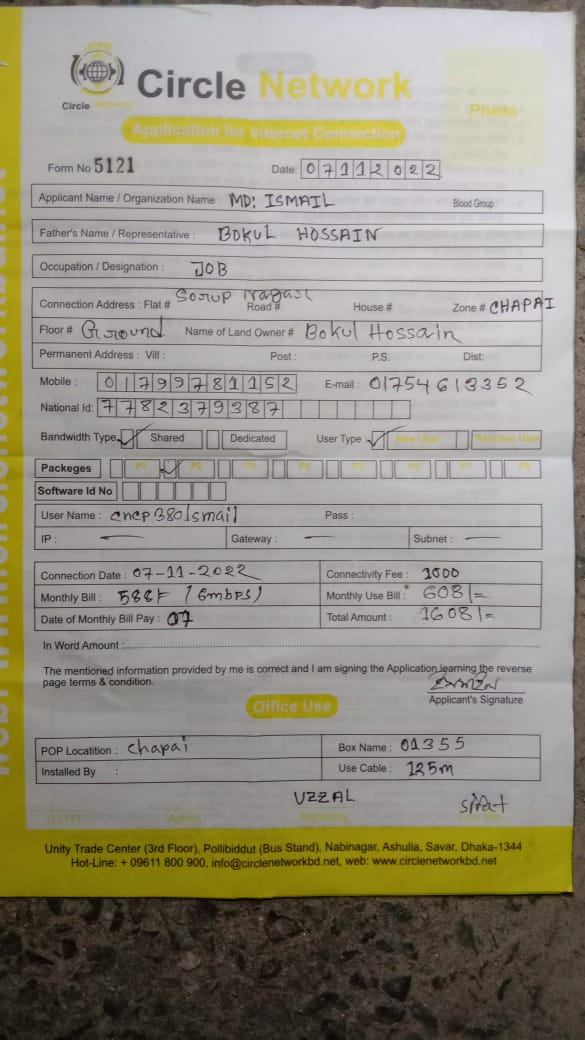 Circle Network
Circle
Photo
Application for Internet Connection
Form No 5121 Date: 07112022
Applicant Name / Organization Name : MD: ISMAIL Blood Group :
Father's Name / Representative : BOKUL HOSSAIN
Occupation / Designation : JOB
Connection Address : Flat # Road # House # Zone # CHAPAI
Floor # Ground Name of Land Owner # Bokul Hossain
Permanent Address : Vill : Post : P.S. Dist:
Mobile : 01799781152 E-mail : 01754613352
National Id: 7782379387
Bandwidth Type Shared Dedicated User Type : New User Reactive User
Packeges P1 P2 P3 P4 P5 P6 P7 P8
Software Id No
User Name : cncp380Ismail Pass :
IP : — Gateway : — Subnet : —
Connection Date : 07-11-2022 Connectivity Fee : 1000
Monthly Bill : (6mbps) Monthly Use Bill : 608/=
Date of Monthly Bill Pay : 07 Total Amount : 1608/=
In Word Amount :
The mentioned information provided by me is correct and I am signing the Application learning the reverse
page terms & condition.
Applicant's Signature
Office Use
POP Locatition : chapai Box Name : 01355
Installed By : Use Cable : 125m
UZZAL
Admin Marketing
Unity Trade Center (3rd Floor), Pollibiddut (Bus Stand), Nabinagar, Ashulia, Savar, Dhaka-1344
Hot-Line: + 09611 800 900, info@circlenetworkbd.net, web: www.circlenetworkbd.net